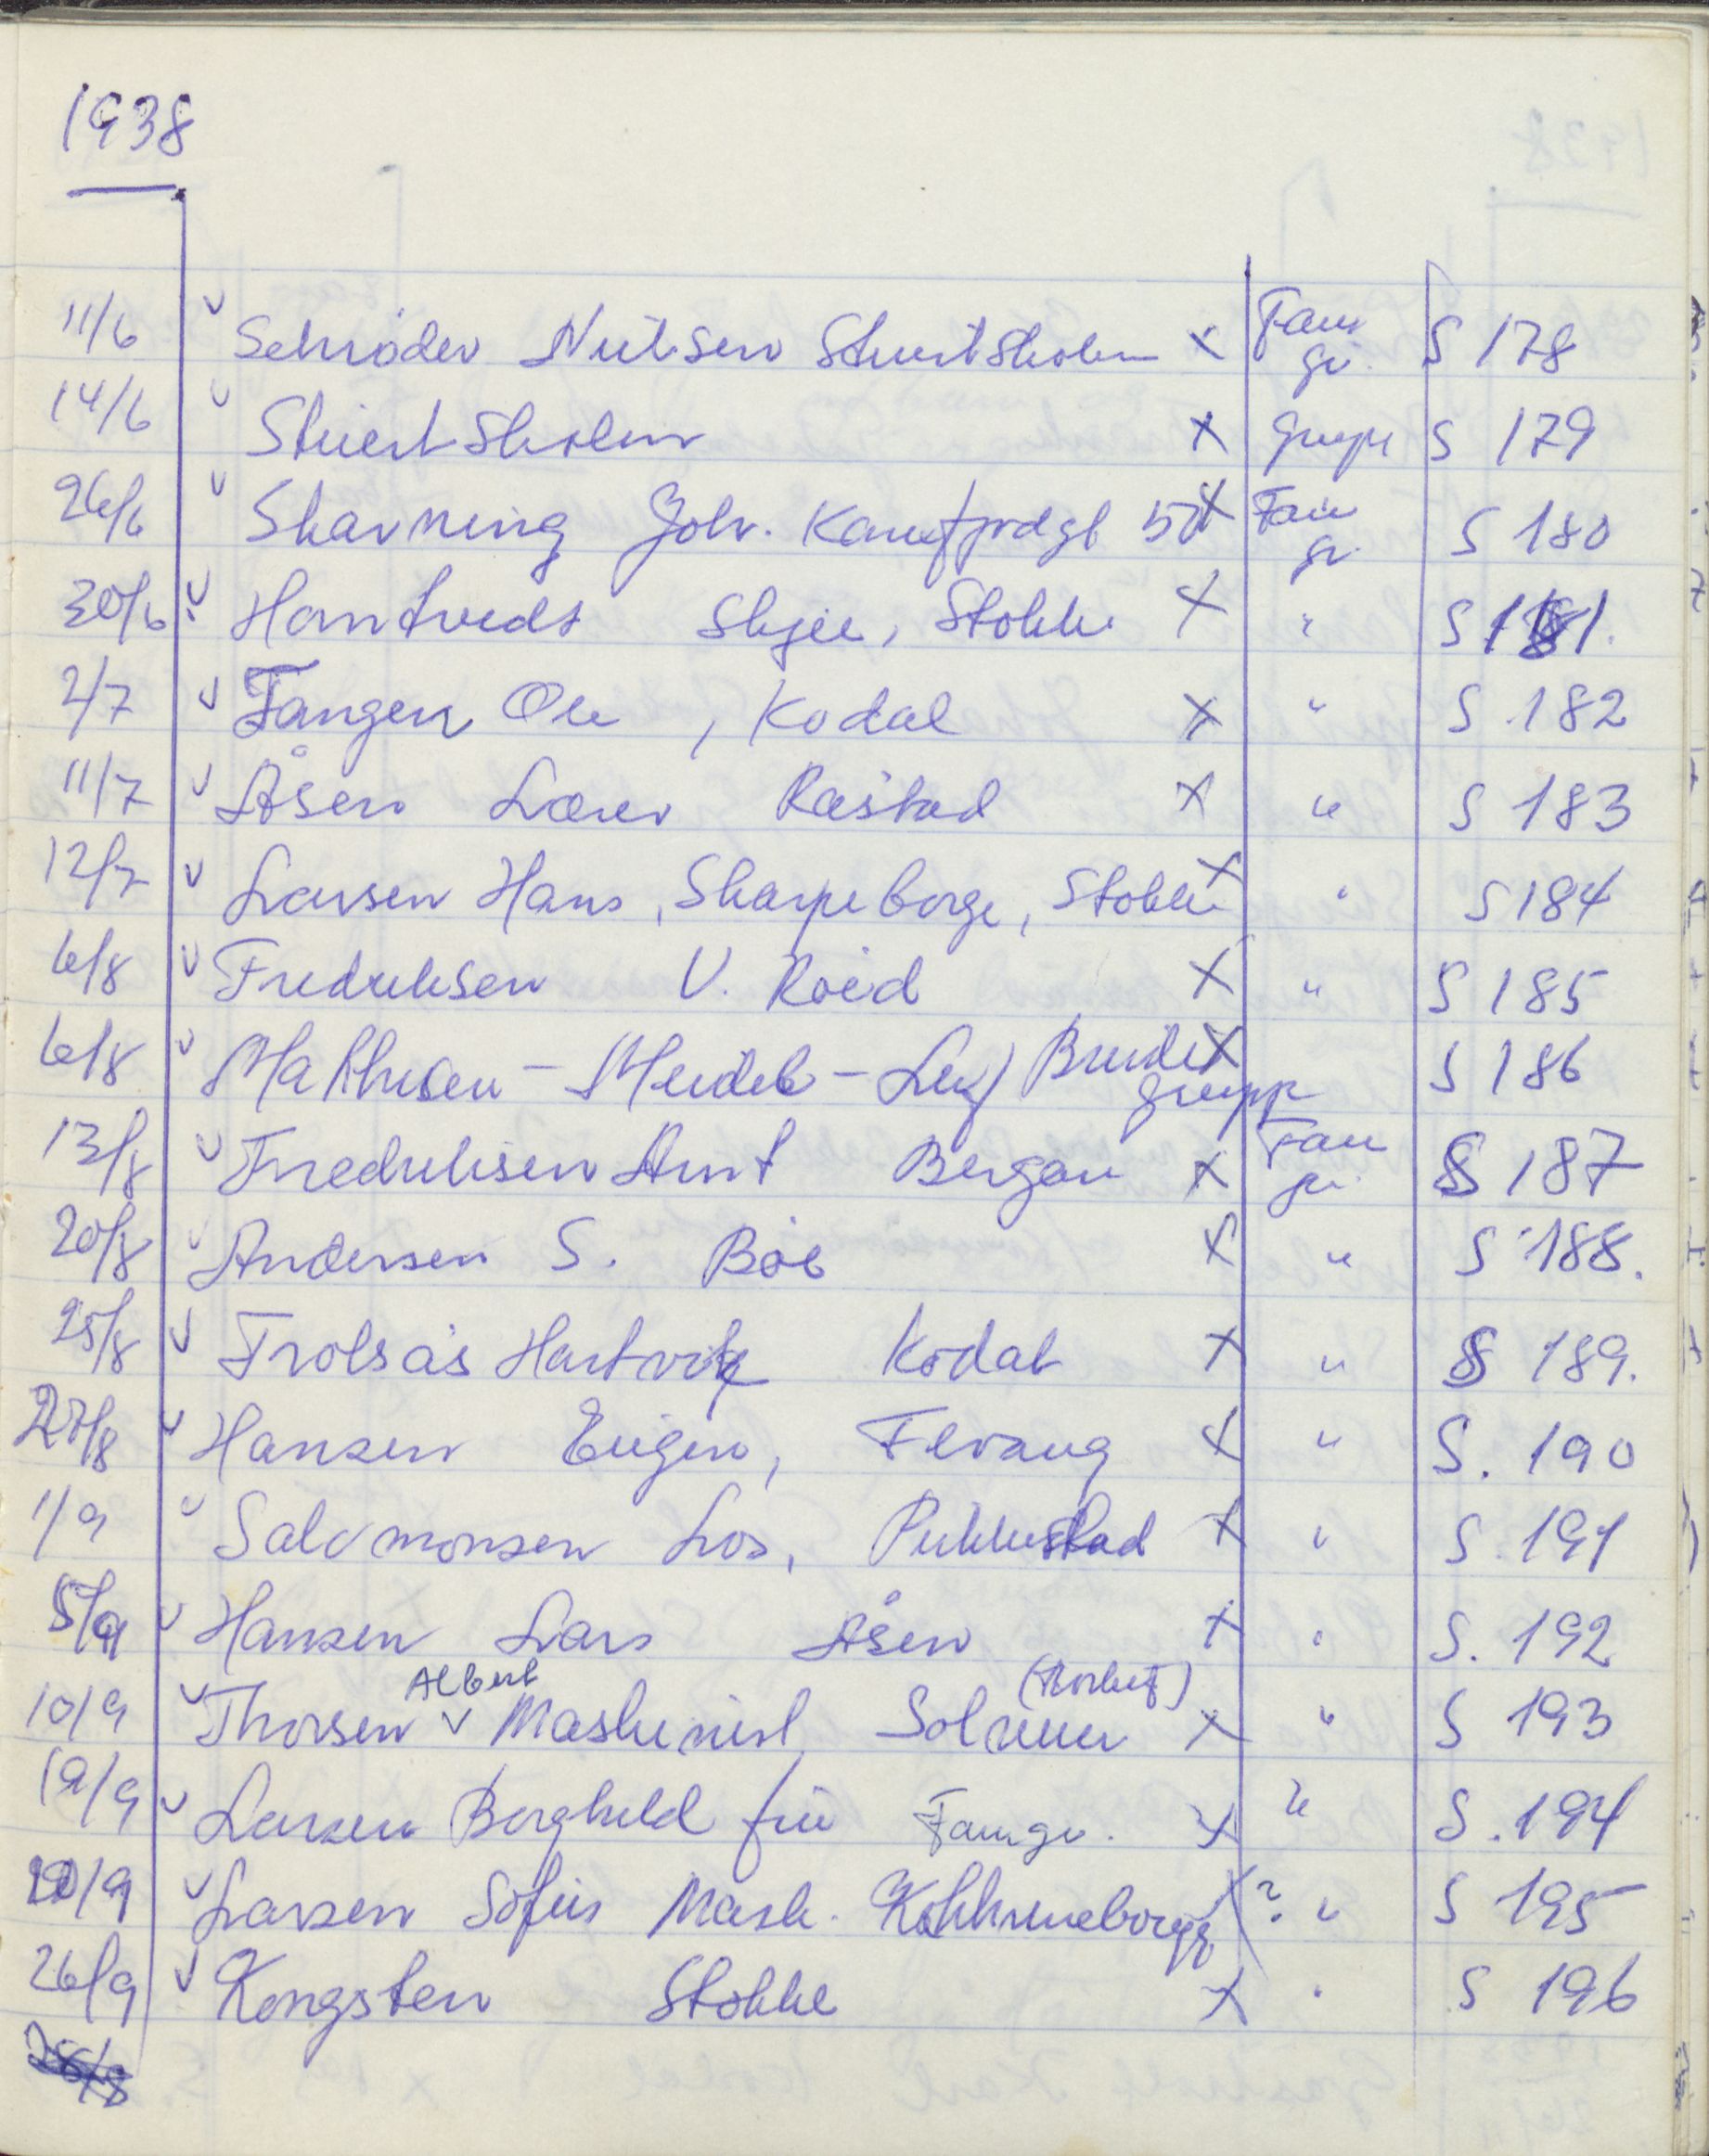 1938
11/6 v Schrøder Nielsen Stuertsholm x Fam gr. S 178
14/6 v Stuertsholm x Gruppe S 179
26/6 v Skarning Joh. x Fam gr. S 180
30/6 v Hamtvedt Skjee, Stokke x " S 181.
2/7 v Fangen Ole, Kodal x " S 182
11/7 v Åsen Lærer Råstad x " S 183
12/7 v Larsen Hans, Skarpeborge, Stokke x " S 184
6/8 v Fredriksen V. Røed x " S 185
6/8 v Mathisen - Meidel - Leif Brude x gruppe S 186
13/8 v Fredriksen Arnt Bergan x Fam gr. S 187
20/8 v Andersen S. Bøe x " S 188.
25/8 v Trolsås Hartvig Kodal x " S 189.
27/8 v Hansen Eugen, Fevang x " S. 190
1/9 v Salomonsen Los, Pukkestad x " S. 191
5/9 v Hansen Lars Åsen x " S. 192
10/9 v Thorsen v Albert Maskinist Solvein (Thorleif) x " S 193
19/9 v Larsen Borghild frü Famgr. x " S. 194
20/9 v Larsen Sofus Mask. x ? " S 195
26/9 v Kongsten Stokke x " S 196